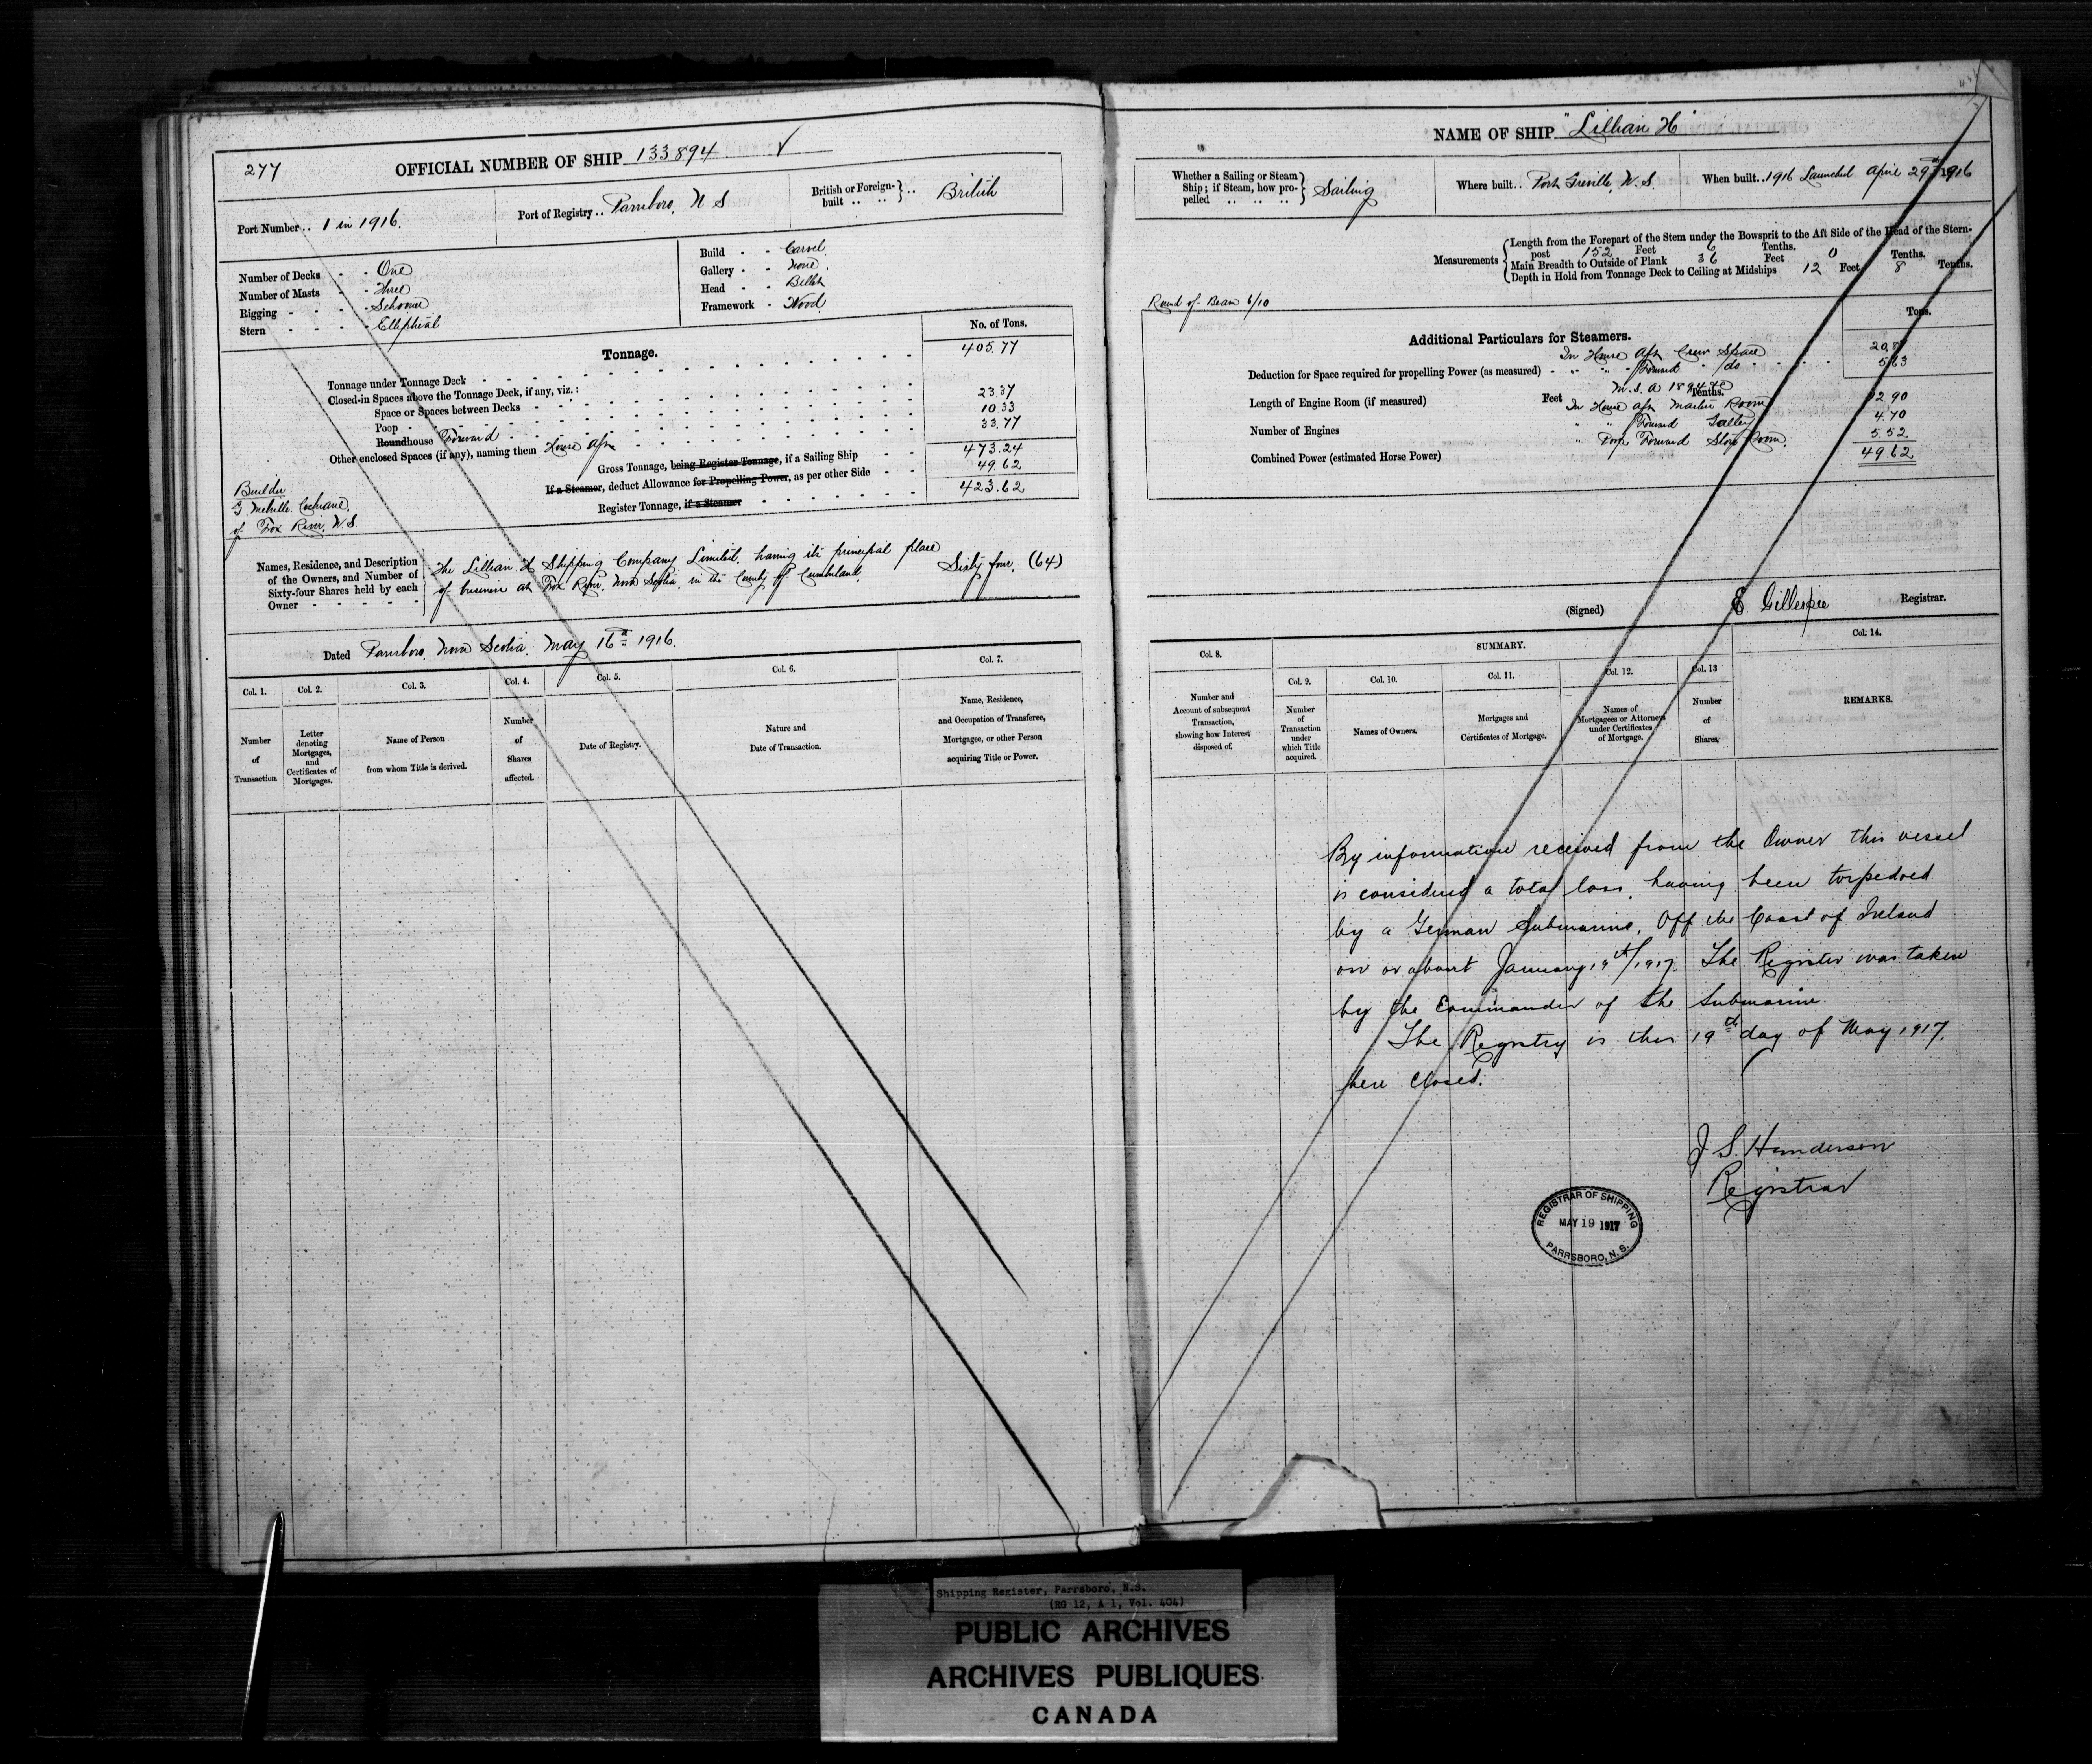 277
OFFICIAL NUMBER OF SHIP 133894 ✓
Port Number .. 1 in 1916.
Port of Registry .. Parrsboro, N S
British or Foreign-built .. .. } .. British
Number of Decks - - One
Number of Masts - - Three
Rigging - - - - Schooner
Stern - - - - Elliptical
Build - - Carvel
Gallery - - None.
Head - - Billet
Framework - Wood
Tonnage.
No. of Tons.
Tonnage under Tonnage Deck 405.77
Closed-in Spaces above the Tonnage Deck, if any, viz.:
Space or Spaces between Decks
Poop
Roundhouse Forward
Other enclosed Spaces (if any), naming them House Aft
23.37
10.33
33.77
Gross Tonnage, being Register Tonnage, if a Sailing Ship 473.24
If a Steamer, deduct Allowance for Propelling Power, as per other Side 49.62
Register Tonnage, if a Steamer 423.62
Builder
G. Melville Cochrane,
of Fox River, N.S
Names, Residence, and Description
of the Owners, and Number of
Sixty-four Shares held by each
Owner
The Lillian H Shipping Company Limited, having its principal place
of business at Fox River, Nova Scotia, in the County of Cumberland,
Sixty four, (64)
Dated Parrsboro, Nova Scotia, May 16th 1916.
Col. 1.
Number
of
Transaction.
Col. 2.
Letter
denoting
Mortgages,
and
Certificates of
Mortgages.
Col. 3.
Name of Person
from whom Title is derived.
Col. 4.
Number
of
Shares
affected.
Col. 5.
Date of Registry.
Col. 6.
Nature and
Date of Transaction.
Col. 7.
Name, Residence,
and Occupation of Transferee,
Mortgagee, or other Person
acquiring Title or Power.
NAME OF SHIP "Lillian H"
Whether a Sailing or Steam
Ship; if Steam, how pro-
pelled .. .. .. } Sailing
Where built .. Port Greville, N.S.
When built .. 1916 Launched April 29th 1916
Measurements
Length from the Forepart of the Stem under the Bowsprit to the Aft Side of the Head of the Stern-
post 152 Feet 6 Tenths.
Main Breadth to Outside of Plank 36 Feet 0 Tenths.
Depth in Hold from Tonnage Deck to Ceiling at Midships 12 Feet 8 Tenths.
Round of Beam 6/10
Additional Particulars for Steamers.
Tons.
In House Aft Crew Space
" " Forward " do
Deduction for Space required for propelling Power (as measured)
5.63
M.S.A 1894
Length of Engine Room (if measured) Feet Tenths.
In House Aft Master Room 12 90
Number of Engines
" " Forward Galley 4.70
" Poop Forward Store Room, 5.52
Combined Power (estimated Horse Power)
49.62
(Signed) E Gillespie Registrar.
Col. 8.
Number and
Account of subsequent
Transaction,
showing how Interest
disposed of.
SUMMARY.
Col. 9.
Number
of
Transaction
under
which Title
acquired.
Col. 10.
Names of Owners.
Col. 11.
Mortgages and
Certificates of Mortgage.
Col. 12.
Names of
Mortgagees or Attorneys
under Certificates
of Mortgage.
Col. 13
Number
of
Shares.
Col. 14.
REMARKS.
By information received from the Owner this vessel
is considered a total loss, having been torpedoed
by a German Submarine, Off the Coast of Ireland
on or about January 19th/1917. The Register was taken
by the Commander of the Submarine.
The Registry is this 19th day of May 1917,
here Closed.
J S. Henderson
Registrar
REGISTRAR OF SHIPPING
MAY 19 1917
PARRSBORO, N. S.
Shipping Register, Parrsboro, N.S.
(RG 12, A 1, Vol. 404)
PUBLIC ARCHIVES
ARCHIVES PUBLIQUES
CANADA